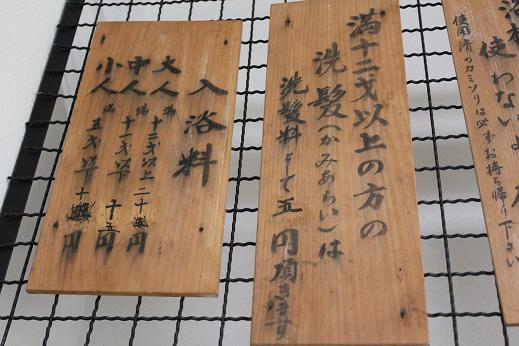 使わない
使用済のカミソリは必ずお持ち帰り下さい
満十二才以上の方の
洗髪(かみあらい)は
洗髪料として五円頂きます
入浴料
大人 満十二才以上 二十円
中人 満十一才 十五円
小人 満五才 十円